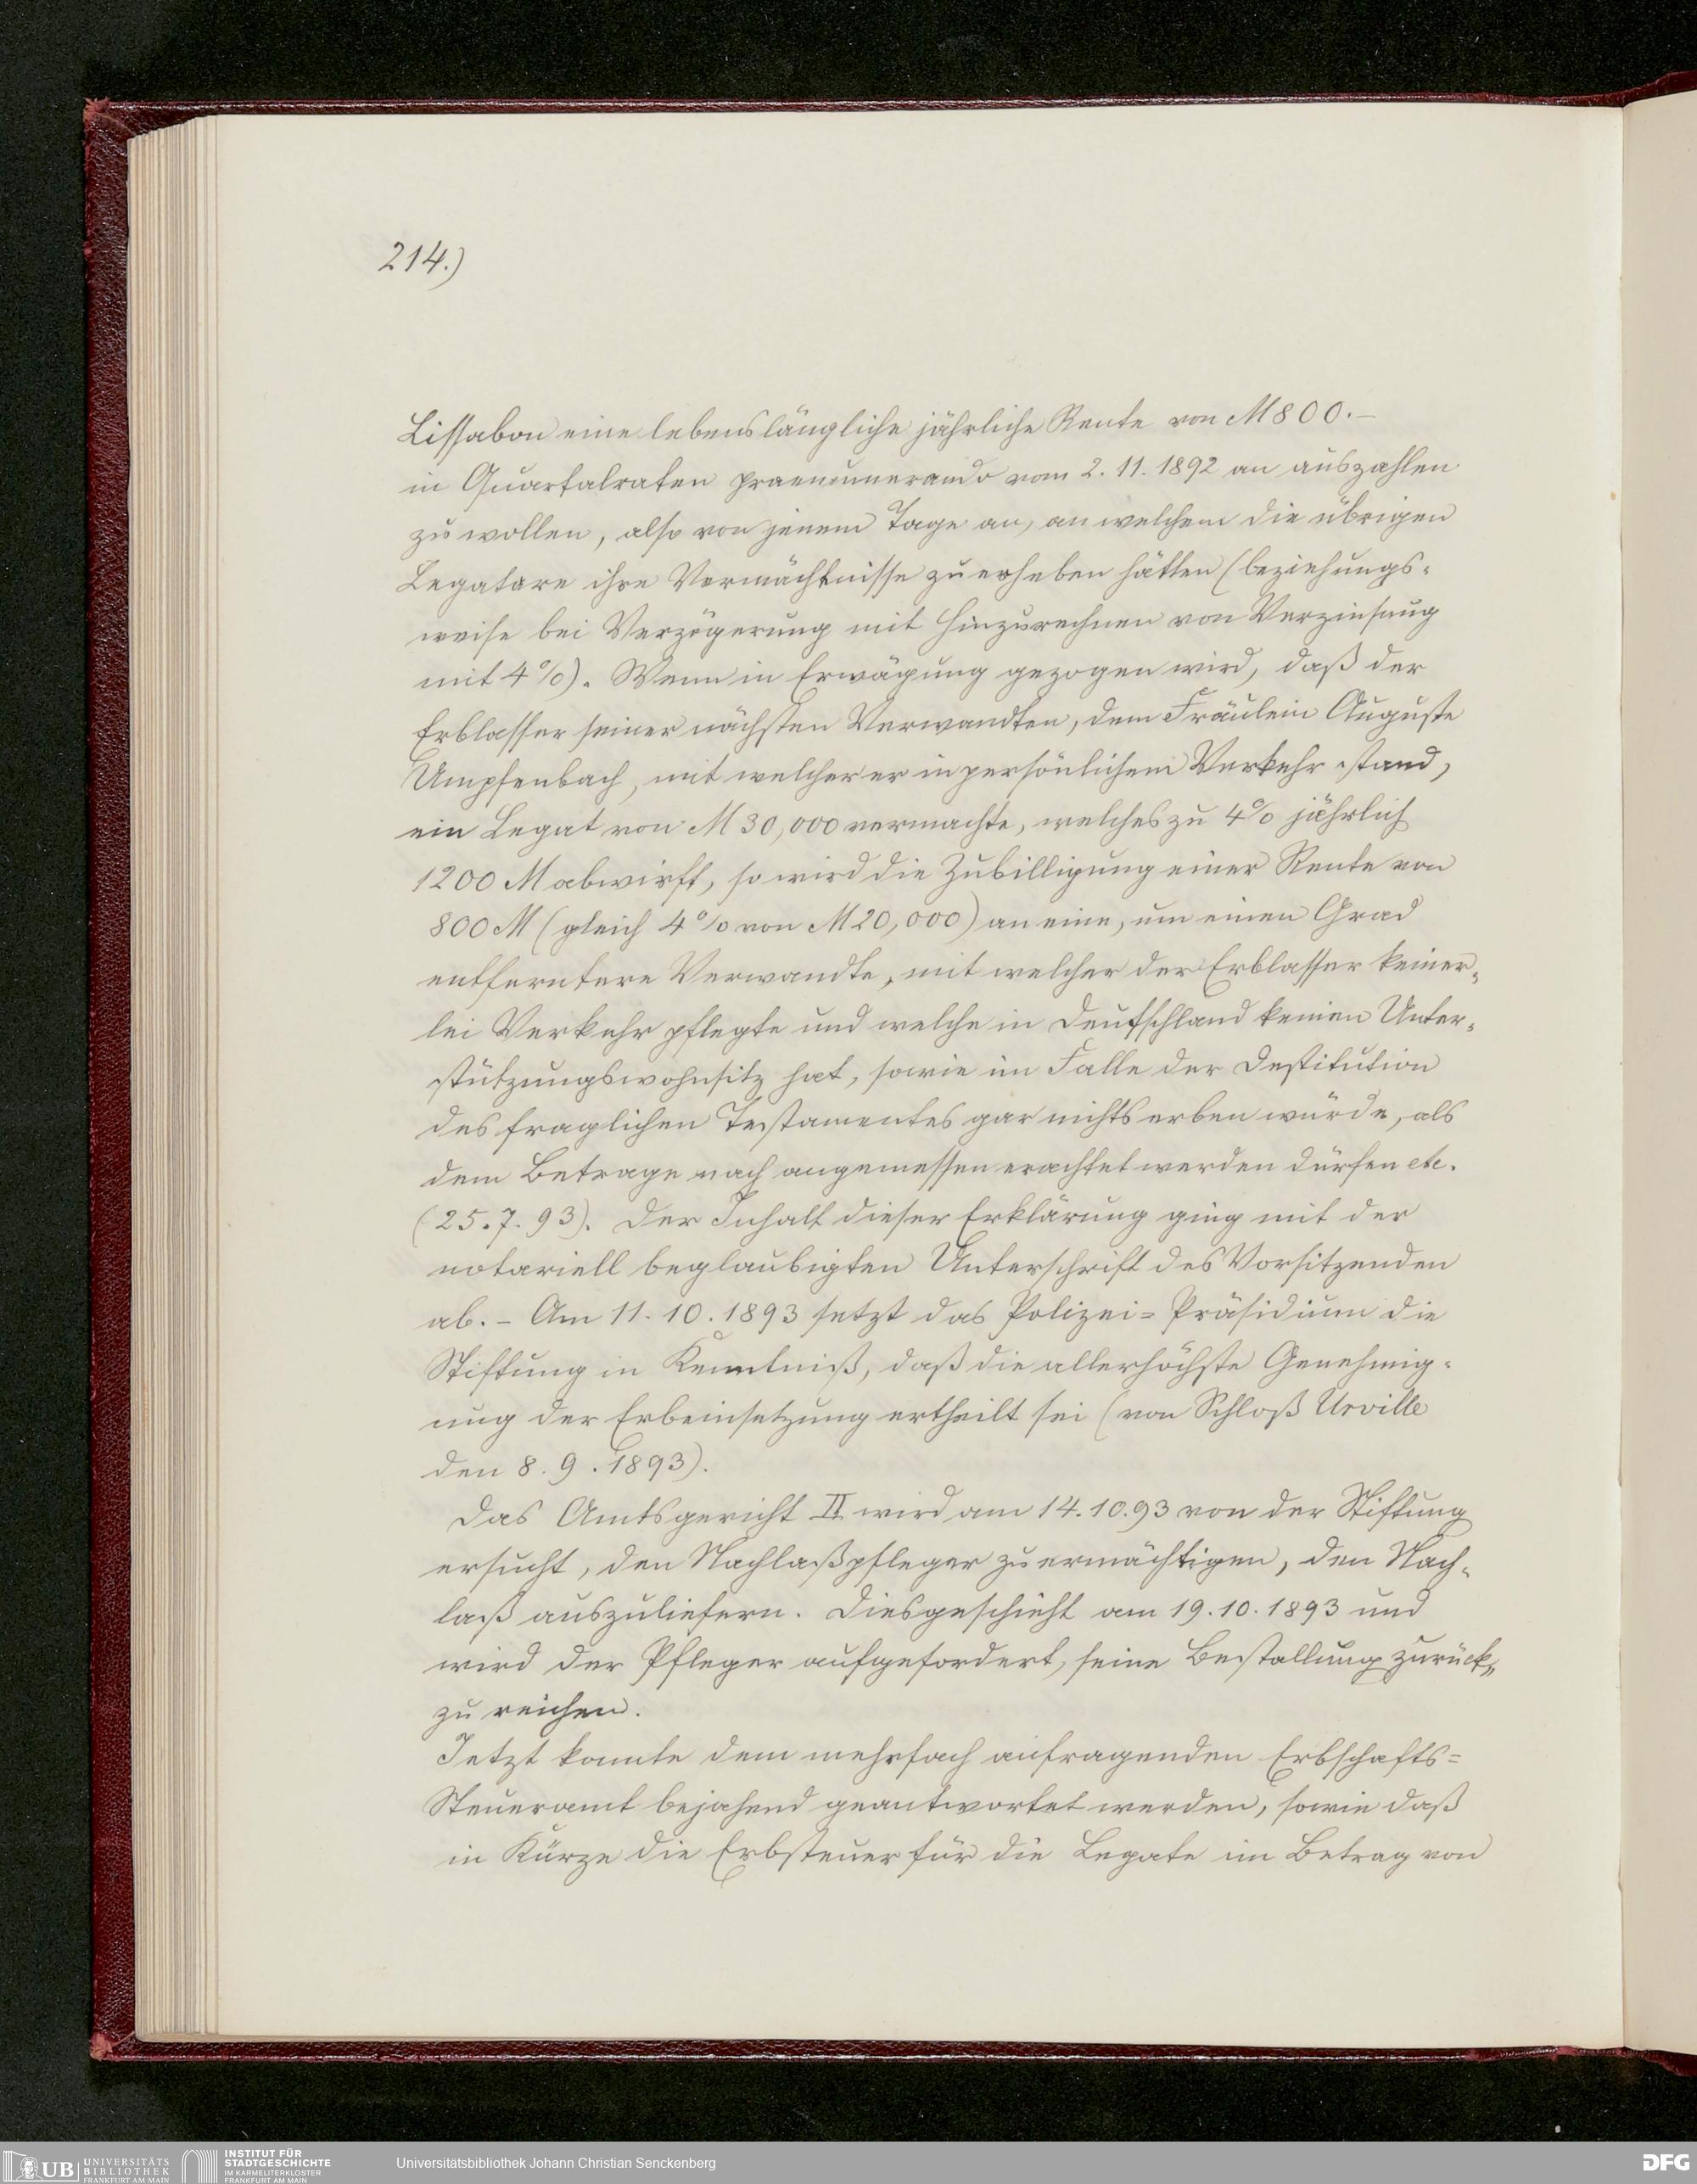 214.)
Lissabon eine lebenslängliche jährliche Rente von M 800.—
in Quartalraten praenumerando vom 2. 11. 1892 an auszahlen
zu wollen, also von jenem Tage an, an welchem die übrigen
Legatare ihre Vermächtnisse zu erheben hätten (beziehungs-
weise bei Verzögerung mit Hinzurechnen von Verzinsung
mit 4%). Wenn in Erwägung gezogen wird, daß der
Erblasser seiner nächsten Verwandten, dem Fräulein Auguste
Umpfenbach, mit welcher er in persönlichem Verkehr stand,
ein Legat von M 30,000 vermachte, welches zu 4% jährlich
1200 M abwirft, so wird die Zubilligung einer Rente von
800 M (gleich 4% von M 20,000) an eine, um einen Grad
entferntere Verwandte, mit welcher der Erblasser keiner-
lei Verkehr pflegte und welche in Deutschland keinen Unter-
stützungswohnsitz hat, sowie im Falle der Destitution
des fraglichen Testamentes gar nichts erben würde, als
dem Betrage nach angemessen erachtet werden dürfen etc.
(25. 7. 93). Der Inhalt dieser Erklärung ging mit der
notariell beglaubigten Unterschrift des Vorsitzenden
ab. – Am 11. 10. 1893 setzt das Polizei=Präsidium die
Stiftung in Kenntniß, daß die allerhöchste Genehmig-
ung der Erbeinsetzung ertheilt sei (von Schloß Urville
den 8. 9. 1893).
Das Amtsgericht II wird am 14. 10. 93 von der Stiftung
ersucht, den Nachlaßpfleger zu ermächtigen, den Nach-
laß auszuliefern. Dies geschieht am 19. 10. 1893 und
wird der Pfleger aufgefordert, seine Bestallung zurück-
zu reichen.
Jetzt konnte dem mehrfach anfragenden Erbschafts=
Steueramt bejahend geantwortet werden, sowie daß
in Kürze die Erbsteuer für die Legate im Betrag von
UB UNIVERSITÄTS
BIBLIOTHEK
FRANKFURT AM MAIN
INSTITUT FÜR
STADTGESCHICHTE
IM KARMELITERKLOSTER
FRANKFURT AM MAIN
Universitätsbibliothek Johann Christian Senckenberg
DFG